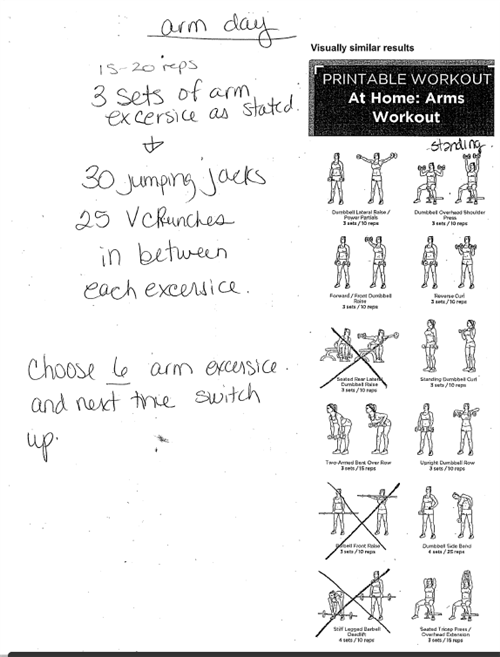 arm day
15-20 reps
3 sets of arm
excersice as stated.
+
30 jumping jacks
25 V CRunches
in between
each excersice.
choose 6 arm excersice.
and next time switch
up.
Visually similar results
PRINTABLE WORKOUT
At Home: Arms
Workout
standing.
Dumbbell Lateral Raise /
Power Partials
3 sets / 10 reps
Dumbbell Overhead Shoulder
Press
3 sets / 10 reps
Forward / Front Dumbbell
Raise
3 sets / 10 reps
Reverse Curl
3 sets / 10 reps
Seated Rear Lateral
Dumbbell Raise
3 sets / 10 reps
Standing Dumbbell Curl
3 sets / 10 reps
Two Armed Bent Over Row
3 sets / 15 reps
Upright Dumbbell Row
3 sets / 10 reps
Barbell Front Raise
3 sets / 10 reps
Dumbbell Side Bend
4 sets / 25 reps
Stiff Legged Barbell
Deadlift
4 sets / 10 reps
Seated Tricep Press /
Overhead Extension
3 sets / 15 reps